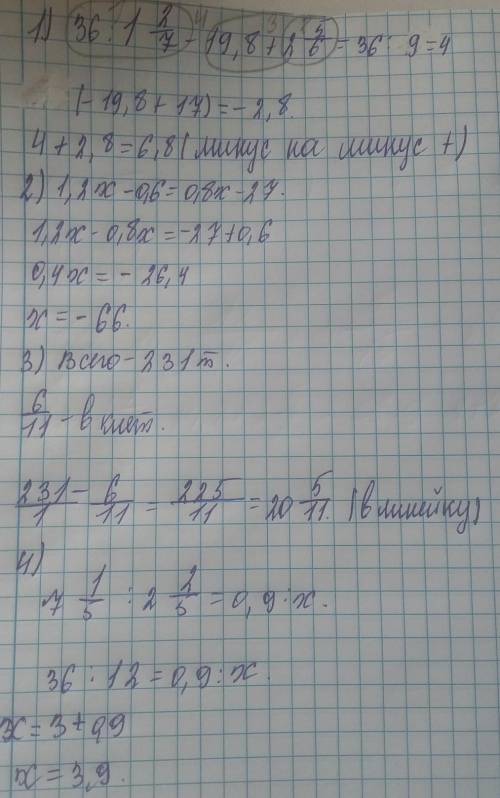 1) 36 : 1 2/7 - 19,8 + 2 5/6 = 36 : 9 = 4
(-19,8 + 17) = -2,8.
4 + 2,8 = 6,8 (минус на минус +)
2) 1,2x - 0,6 = 0,8x - 27.
1,2x - 0,8x = -27 + 0,6
0,4x = - 26,4
x = - 66.
3) Всего - 231 т.
6/11 - в клет.
231/1 - 6/11 = 225/11 = 20 5/11. (в линейку)
4)
7 1/5 : 2 2/5 = 0,9 : x.
36 : 12 = 0,9 : x.
x = 3 + 0,9
x = 3,9.